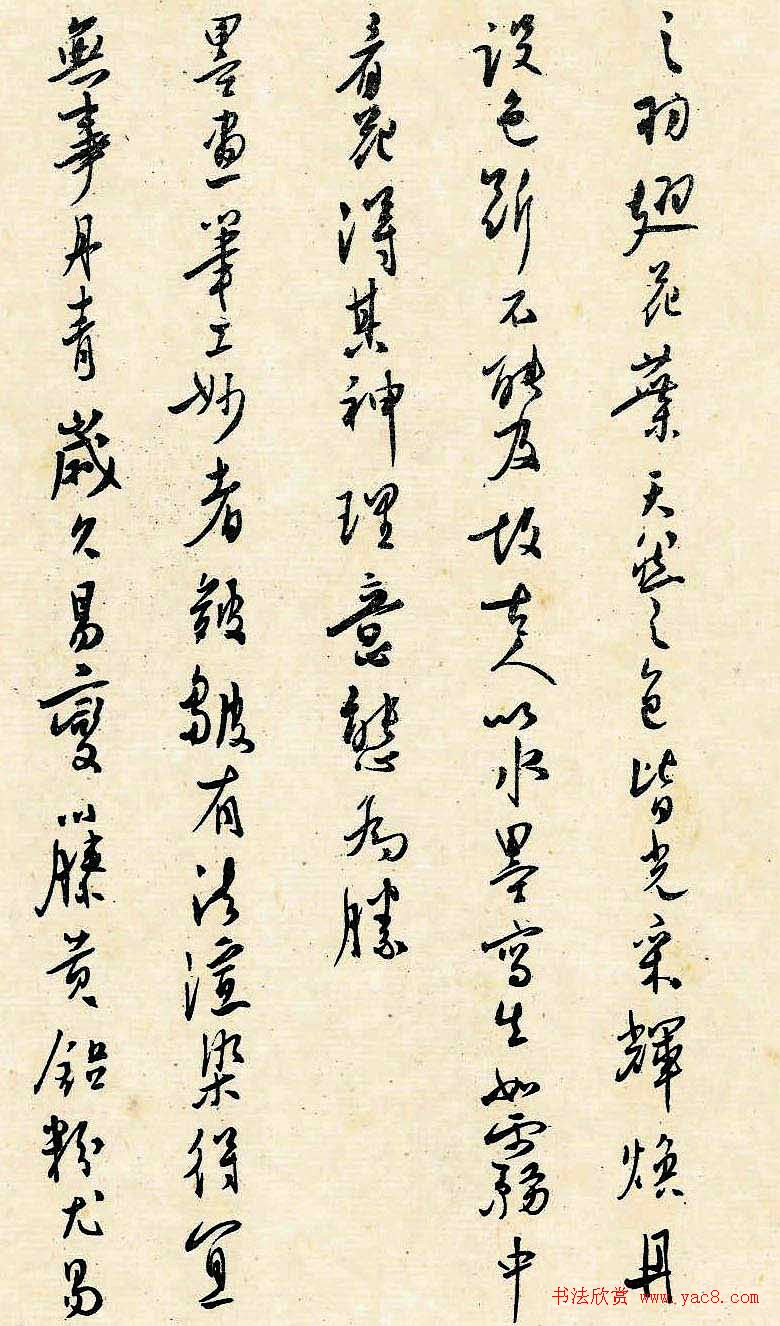 之羽翅花葉天然之色皆光采輝煥
設色斷不能及故古人以水墨寫生如霧中
看花得其神理意態為勝
墨畫筆工妙者皺有法渲染得宜
無事丹青歲久易變藤黃鉛粉尤易
书法欣赏 www.yac8.com